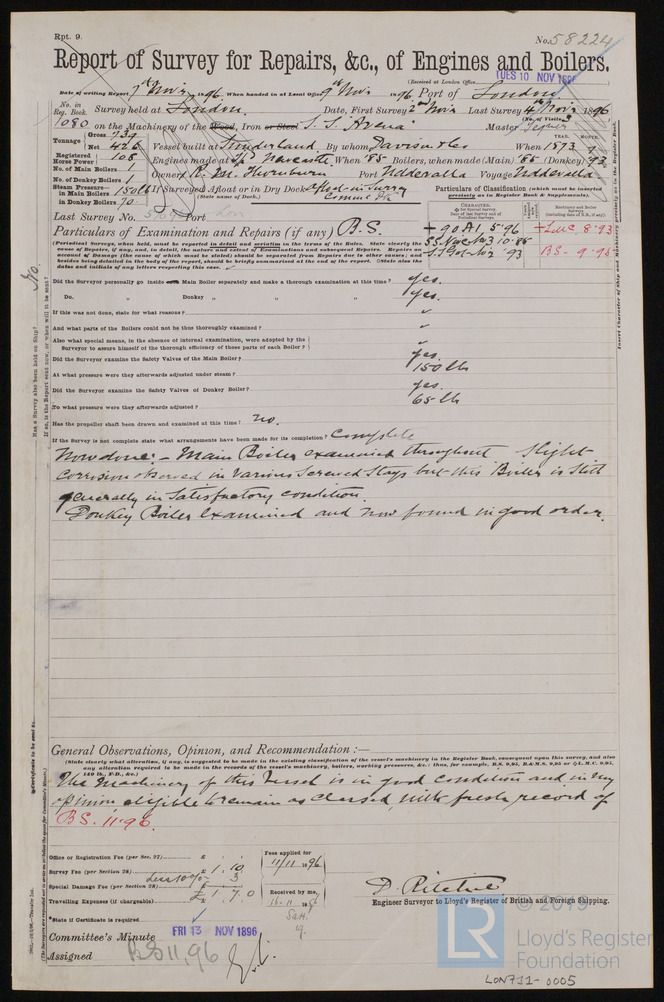 Rpt. 9.
No. 58224
Report of Survey for Repairs, &c., of Engines and Boilers.
(Received at London Office
TUES 10 NOV 1896
Date of writing Report 7th Nov 1896. When handed in at Local Office 9th Nov 1896 Port of London
No. in Reg. Book
Survey held at London. Date, First Survey 2nd Nov Last Survey 4th Nov 1896
(No. of Visits 3
1080 on the Machinery of the Wood, Iron or Steel S. S. Avena Master
Tonnage Gross
Net 425
Vessel built at Sunderland By whom When 1873
Registered Horse Power 108
Engines made at Newcastle. When '85 Boilers, when made (Main) '85 (Donkey) 93
No. of Main Boilers 1
Owners R. M. Port Uddevalla Voyage Uddevalla
No. of Donkey Boilers 1
Steam Pressure—
in Main Boilers 150 lb
in Donkey Boilers 70
If Surveyed Afloat or in Dry Dock Afloat in Surrey
(State name of Dock.) Comml Dk
Particulars of Classification (which must be inserted
precisely as in Register Book & Supplements).
Last Survey No. Port Lon
Particulars of Examination and Repairs (if any) B.S.
+ 90 A1. 5.96
+ LMC 8.93
SS. Nwc No 3 10.85
BS. 9.95
(Periodical Surveys, when held, must be reported in detail and seriatim in the terms of the Rules. State clearly the
cause of Repairs, if any, and, in detail, the nature and extent of Examinations and subsequent Repairs. Repairs on
account of Damage (the cause of which must be stated) should be separated from Repairs due to other causes; and
besides being detailed in the body of the report, should be briefly summarised at the end of the report. State also the
dates and initials of any letters respecting this case.
Did the Surveyor personally go inside each Main Boiler separately and make a thorough examination at this time? yes.
Do. " Donkey " " " yes.
If this was not done, state for what reasons? "
And what parts of the Boilers could not be thus thoroughly examined? "
Also what special means, in the absence of internal examination, were adopted by the
Surveyor to assure himself of the thorough efficiency of those parts of each Boiler? "
Did the Surveyor examine the Safety Valves of the Main Boiler? yes.
At what pressure were they adjusted under steam? 150 lb
Did the Surveyor examine the Safety Valves of Donkey Boiler? yes.
To what pressure were they afterwards adjusted? 65 lb
Has the propeller shaft been drawn and examined at this time? no.
If the Survey is not complete state what arrangements have been made for its completion? Complete
Now done:- Main Boiler examined throughout Slight
Corrosion observed in various Screwed Stays but this Boiler is still
generally in Satisfactory condition.
Donkey Boiler examined and now found in good order.
Has a Survey also been held on Ship? No.
If so, is the Report sent now, or when will it be sent?
General Observations, Opinion, and Recommendation :—
(State clearly what alteration, if any, is suggested to be made in the existing classification of the vessel's machinery in the Register Book, consequent upon this survey, and also
any alteration required to be made in the records of the vessel's machinery, boilers, working pressures, &c.: thus, for example, B.S. 9,95, B.&M.S. 9,95 or L.M.C. 9,95,
140 lb., F.D., &c.)
The Machinery of this Vessel is in good condition and in my
opinion eligible to remain as Classed, with fresh record of
BS. 11.96.
Office or Registration Fee (per Sec. 27) £
Survey Fee (per Section 28) £ 1. 10
Less 10% 3
Special Damage Fee (per Section 28) £ 1. 7. 0
Travelling Expenses (if chargeable) £
Fees applied for
11/11 1896
Received by me,
16.11 1896
D. Ritchie
Engineer Surveyor to Lloyd's Register of British and Foreign Shipping.
*State if Certificate is required
Committee's Minute FRI 13 NOV 1896
Assigned BS 11,96
LR
Lloyd's Register
Foundation
LON711-0005